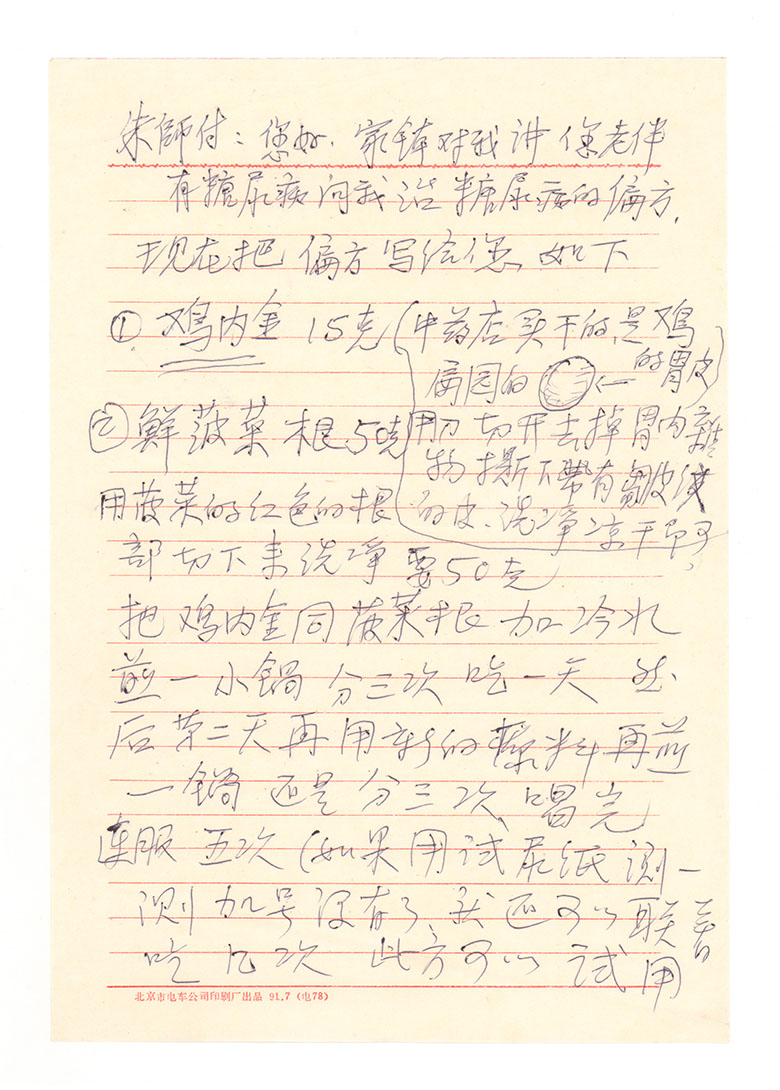 朱師付：您好．家锌对我讲 您老伴
有糖尿病 问我治 糖尿病的偏方，
现在把 偏方写给您、如下
① 鸡内金 15克（中药店买干的，是鸡
的胃皮）
扁园的 ←
用刀切开去掉胃内雜
物 撕下帶有皺皮纹
的皮、洗净凉干即可，
② 鮮菠菜 根 50克
用菠菜的红色的根
部切下来洗净 要50克
把 鸡内金同菠菜根 加冷水
煎一小鍋 分三次 吃一天 然
后第二天再用新的原料再煎
一鍋 还是分三次、喝完
连服 五次（如果用试尿纸测一
测 加号没有了、我还可以联
吃几次 此方可以 试用